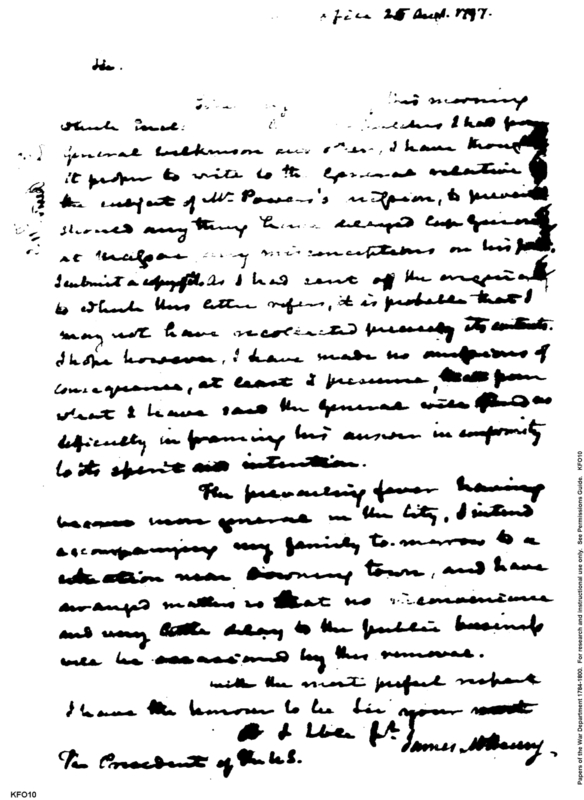 office 28 Augt. 1797.
Sir.
this morning
which I had from
General Wilkinson and others, I have thought
it proper to write to the General relative
the subject of Mr. Powers's mission, to prevent
should anything have delayed Capt Guion
at any misconceptions on his part.
I submit a copy of it. As I had sent off the original
to which this letter refers, it is probable that I
may not have recollected precisely its contents.
I hope however, I have made no omissions of
consequence, at least I presume, from
what I have said the General will find no
difficulty in framing his answer in conformity
to its spirit and intention.
The prevailing fever having
become more general in the City, I intend
accompanying my family to-morrow to a
situation near Downing town, and have
arranged matters so that no inconvenience
and very little delay to the public business
will be occasioned by this removal.
with the most perfect respect
I have the honour to be Sir your most
Ob St.
James McHenry.
The President of the U.S.
KFO10
Papers of the War Department 1784-1800. For research and instructional use only. See Permissions Guide. KFO10